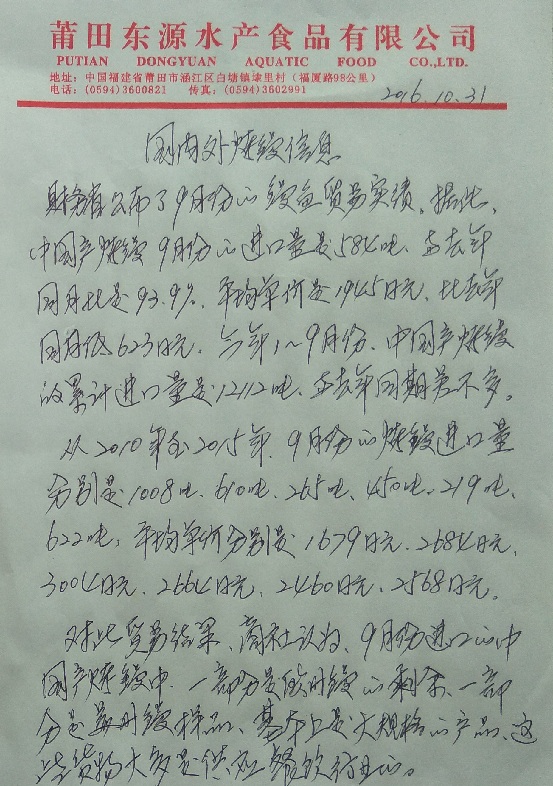 莆田东源水产食品有限公司
PUTIAN DONGYUAN AQUATIC FOOD CO.,LTD.
地址：中国福建省莆田市涵江区白塘镇埭里村（福厦路98公里）
电话：(0594)3600821 传真：(0594)3602991
2016.10.31
国内外烤鳗信息
财务省公布了9月份的鳗鱼贸易实绩。据此，
中国产烤鳗9月份的进口量是584吨、与去年
同月比是93.9%、平均单价是1945日元、比去年
同月低623日元、今年1~9月份、中国产烤鳗
的累计进口量是12112吨、与去年同期差不多。
从2010年至2015年、9月份的烤鳗进口量
分别是1008吨、610吨、265吨、450吨、219吨、
622吨；平均单价分别是1679日元、2684日元、
3004日元、2664日元、2460日元、2568日元。
对此贸易结果、商社认为、9月份进口的中
国产烤鳗中、一部分是伏时鳗的剩余、一部
分是夏时鳗样品、基本上是大规格的产品、这
些货物大多是供应餐饮行业的。